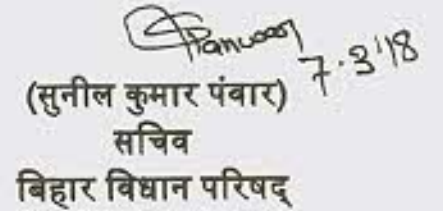 Panwar
7.3'18
(सुनील कुमार पंवार)
सचिव
बिहार विधान परिषद्